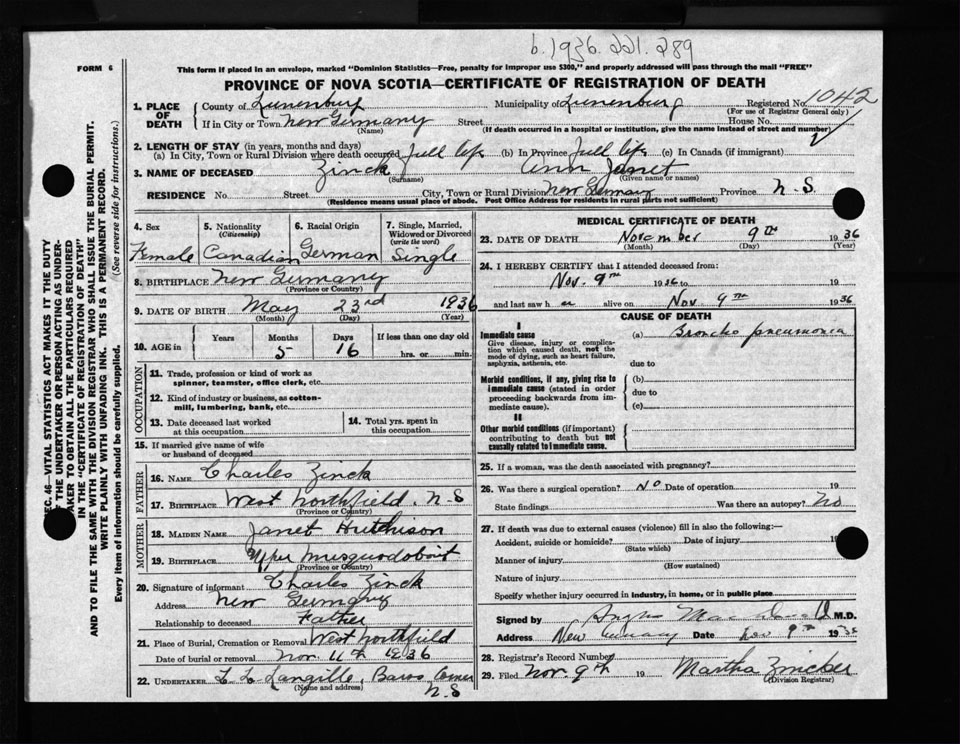 b. 1936. 221. 289
FORM 6
This form if placed in an envelope, marked "Dominion Statistics—Free, penalty for improper use $300," and properly addressed will pass through the mail "FREE"
PROVINCE OF NOVA SCOTIA—CERTIFICATE OF REGISTRATION OF DEATH
1. PLACE OF DEATH County of Lunenburg Municipality of Lunenburg Registered No. 1042
(For use of Registrar General only)
If in City or Town New Germany Street House No.
(Name) (If death occurred in a hospital or institution, give the name instead of street and number)
2. LENGTH OF STAY (in years, months and days)
(a) In City, Town or Rural Division where death occurred full life (b) In Province full life (c) In Canada (if immigrant)
3. NAME OF DECEASED Zinck Ann Janet
(Surname) (Given name or names)
RESIDENCE No. Street City, Town or Rural Division New Germany Province N.S.
(Residence means usual place of abode. Post Office Address for residents in rural parts not sufficient)
SEC. 46—VITAL STATISTICS ACT MAKES IT THE DUTY
OF THE UNDERTAKER OR PERSON ACTING AS UNDER-
TAKER TO OBTAIN ALL THE PARTICULARS REQUIRED
IN THE "CERTIFICATE OF REGISTRATION OF DEATH"
AND TO FILE THE SAME WITH THE DIVISION REGISTRAR WHO SHALL ISSUE THE BURIAL PERMIT.
WRITE PLAINLY WITH UNFADING INK. THIS IS A PERMANENT RECORD.
Every item of information should be carefully supplied. (See reverse side for instructions.)
4. Sex 5. Nationality (Citizenship) 6. Racial Origin 7. Single, Married, Widowed or Divorced (write the word)
Female Canadian German Single
8. BIRTHPLACE New Germany
(Province or Country)
9. DATE OF BIRTH May 23rd 1936
(Month) (Day) (Year)
10. AGE in Years Months Days If less than one day old
5 16 hrs. or min.
OCCUPATION
11. Trade, profession or kind of work as
spinner, teamster, office clerk, etc.
12. Kind of industry or business, as cotton-
mill, lumbering, bank, etc.
13. Date deceased last worked at this occupation 14. Total yrs. spent in this occupation
15. If married give name of wife
or husband of deceased
FATHER
16. NAME Charles Zinck
17. BIRTHPLACE West Northfield. N.S
(Province or Country)
MOTHER
18. MAIDEN NAME Janet Hutchison
19. BIRTHPLACE Upper Musquodoboit
(Province or Country)
20. Signature of informant Charles Zinck
Address New Germany
Relationship to deceased Father
21. Place of Burial, Cremation or Removal West Northfield
Date of burial or removal Nov. 11th 1936
22. UNDERTAKER L. L. Langille, Barss Corner
(Name and address) N.S
MEDICAL CERTIFICATE OF DEATH
23. DATE OF DEATH November 9th 1936
(Month) (Day) (Year)
24. I HEREBY CERTIFY that I attended deceased from:
Nov. 9th 1936 to 19
and last saw h er alive on Nov 9th 1936
CAUSE OF DEATH
I
Immediate cause (a) Broncho pneumonia
Give disease, injury or complica-
tion which caused death, not the
mode of dying, such as heart failure,
asphyxia, asthenia, etc. due to
Morbid conditions, if any, giving rise to (b)
immediate cause (stated in order due to
proceeding backwards from im-
mediate cause). (c)
II
Other morbid conditions (if important)
contributing to death but not
causally related to immediate cause.
25. If a woman, was the death associated with pregnancy?
26. Was there a surgical operation? No Date of operation 19
State findings Was there an autopsy? No
27. If death was due to external causes (violence) fill in also the following:—
Accident, suicide or homicide? Date of injury 19
(State which)
Manner of injury
(How sustained)
Nature of injury
Specify whether injury occurred in industry, in home, or in public place
Signed by M.D.
Address New Germany Date Nov 9th 1936
28. Registrar's Record Number
29. Filed Nov. 9th 19 Martha Zwicker
(Division Registrar)